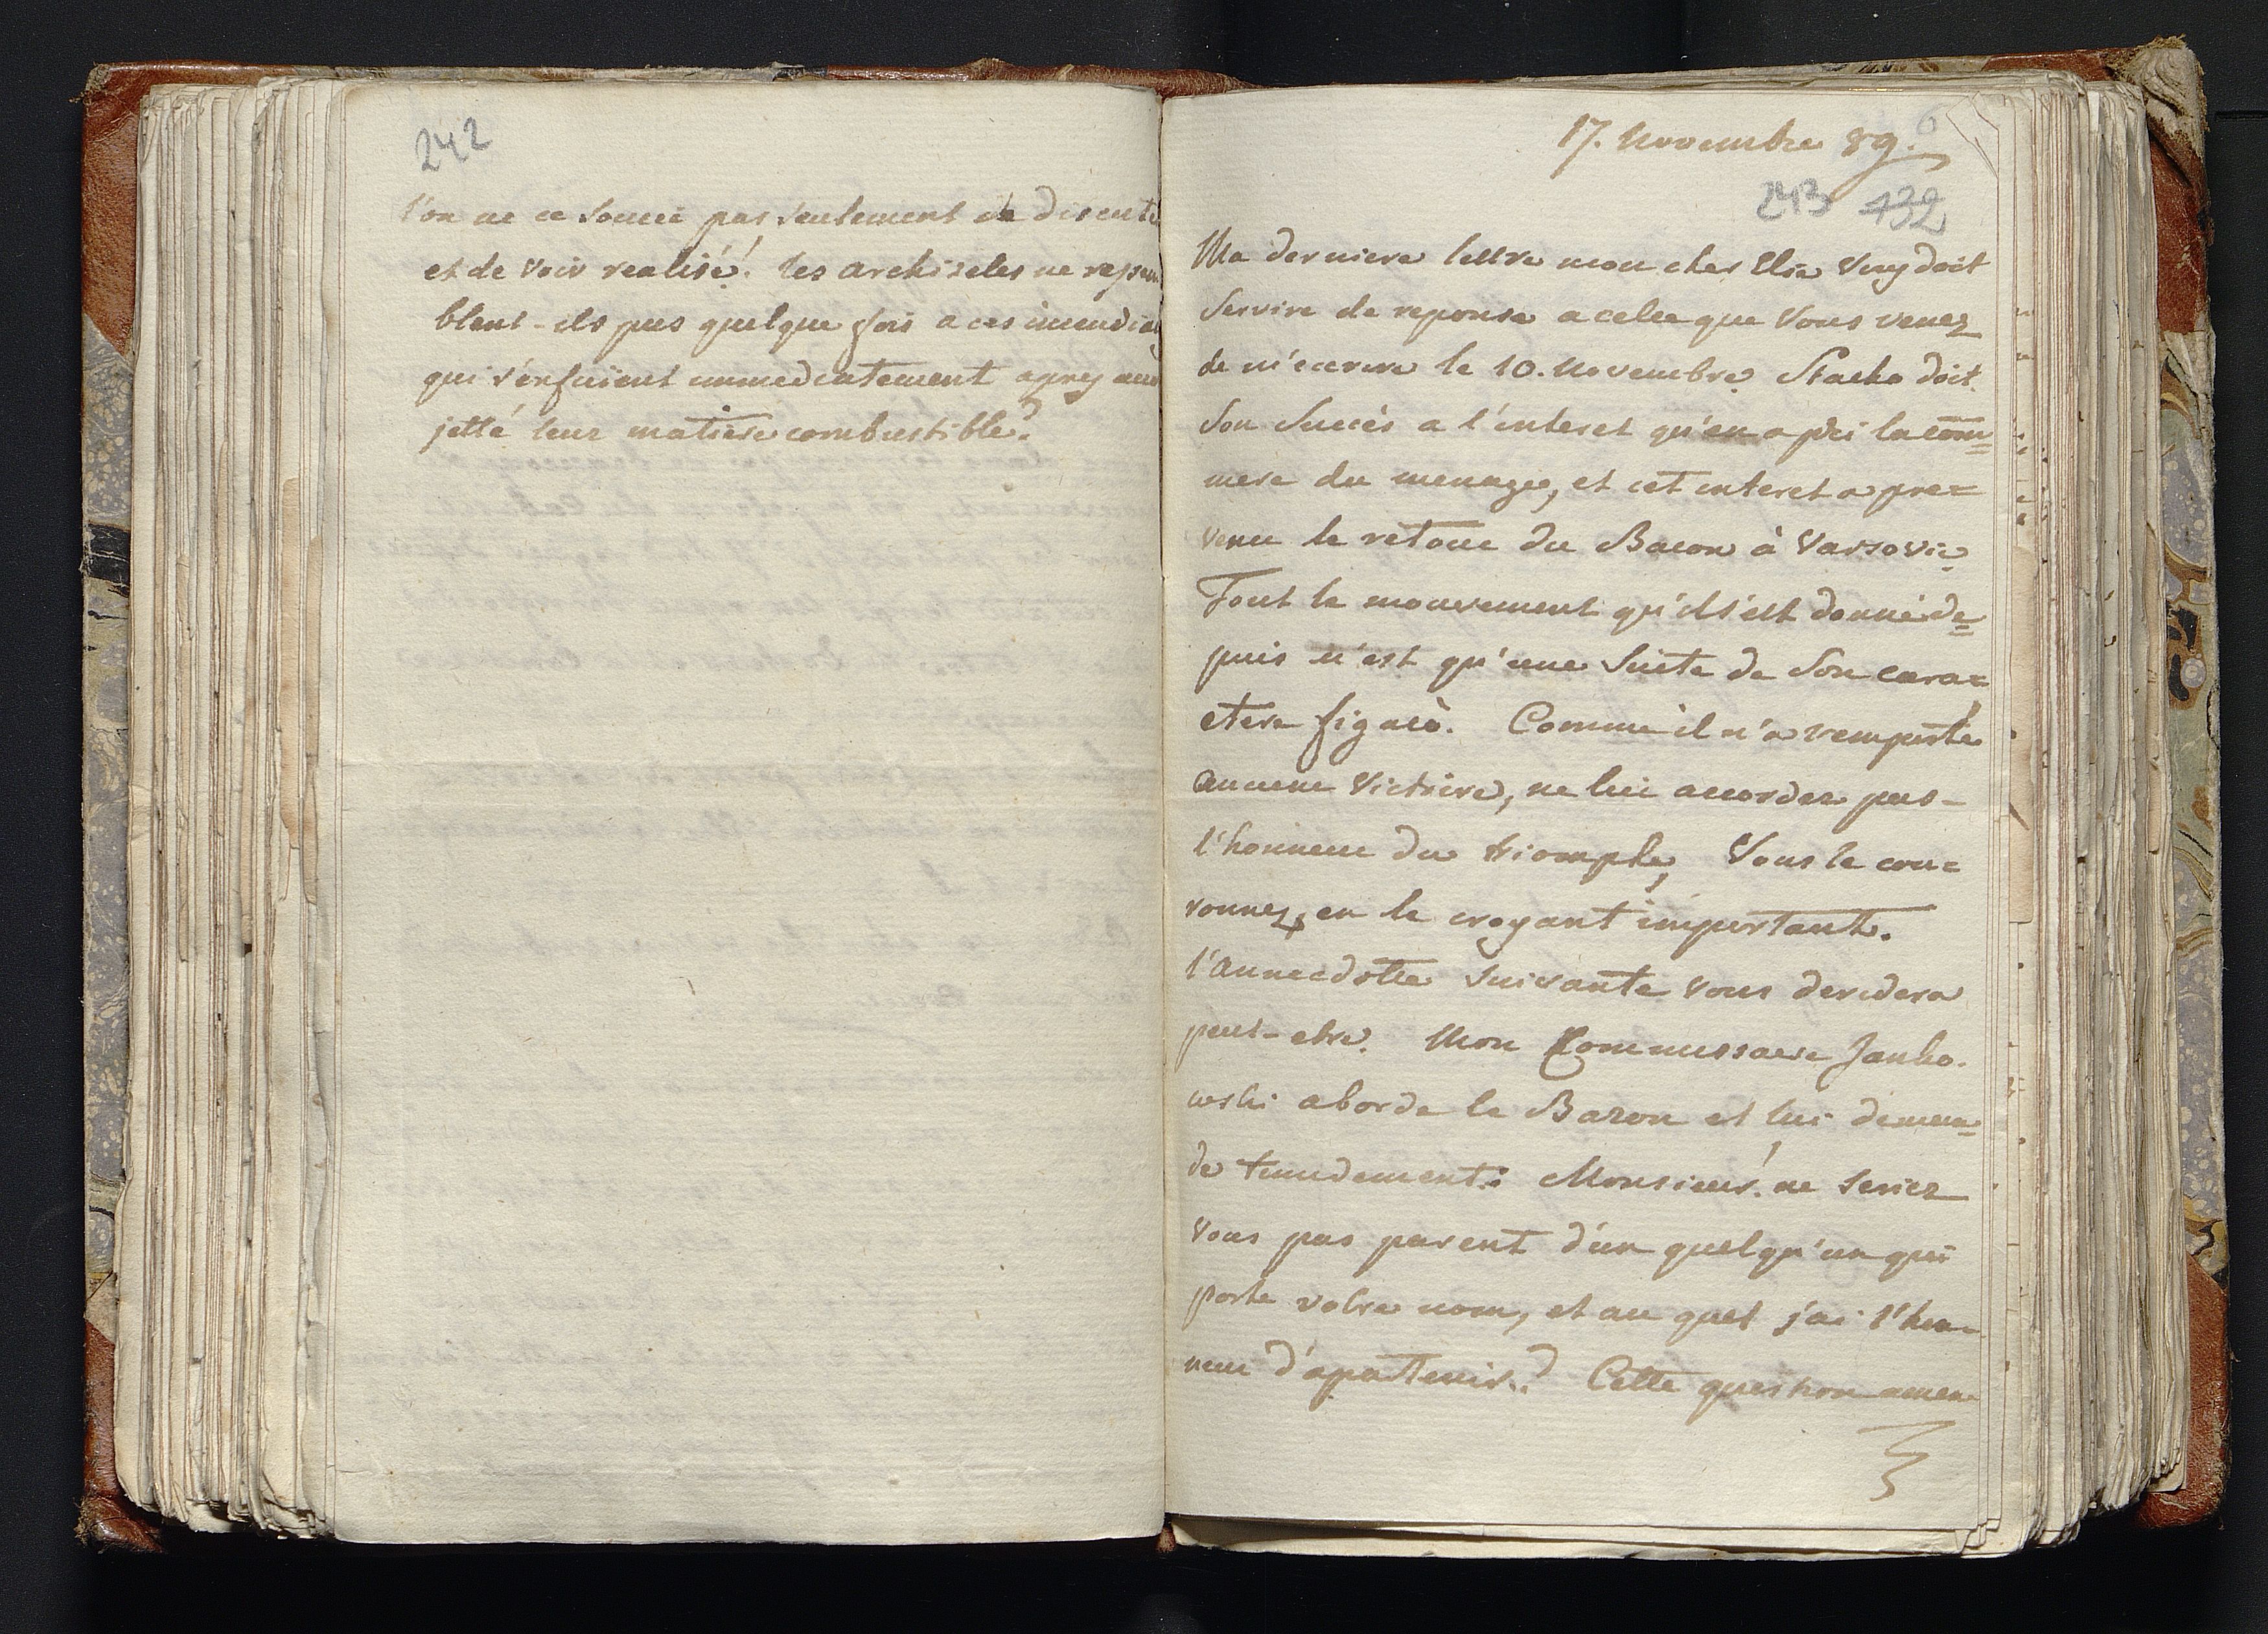 242
l'on ne ce soucie pas seulement de discute
et de voir realisé! les archizeles ne ressem
blent-ils pas quelque fois a ces incendiai
qui s'enfuient immediatement apres avoir
jetté leur matiere combustible?
17. Novembre 89.
243 132
Ma derniere lettre mon cher Elie Vuy doit
servire de reponse a celle que vous venez
de m'ecrire le 10. Novembre. Stacho doit
son succès a l'interet qu'en a pri la com=
mere du menage, et cet interet a pre=
venu le retour du Baron à Varsovie.
Tout le mouvement qu'il s'est donné de=
puis n'est qu'une suite de son cara=
ctere figaro. Comme il n'a remporté
aucune victoire, ne lui accordez pas-
l'honneur du triomphe, vous le cou=
ronnez, en le croyant important.
l'annecdotte suivante vous deridera
peut-etre. Mon Commissaire Janko-
wski aborde le Baron et lui deman=
de timidement: Monsieur! ne seriez
vous pas parent d'un quelqu'un qui
porte votre nom, et au quel j'ai l'hon-
neur d'apartenir? Cette question amene